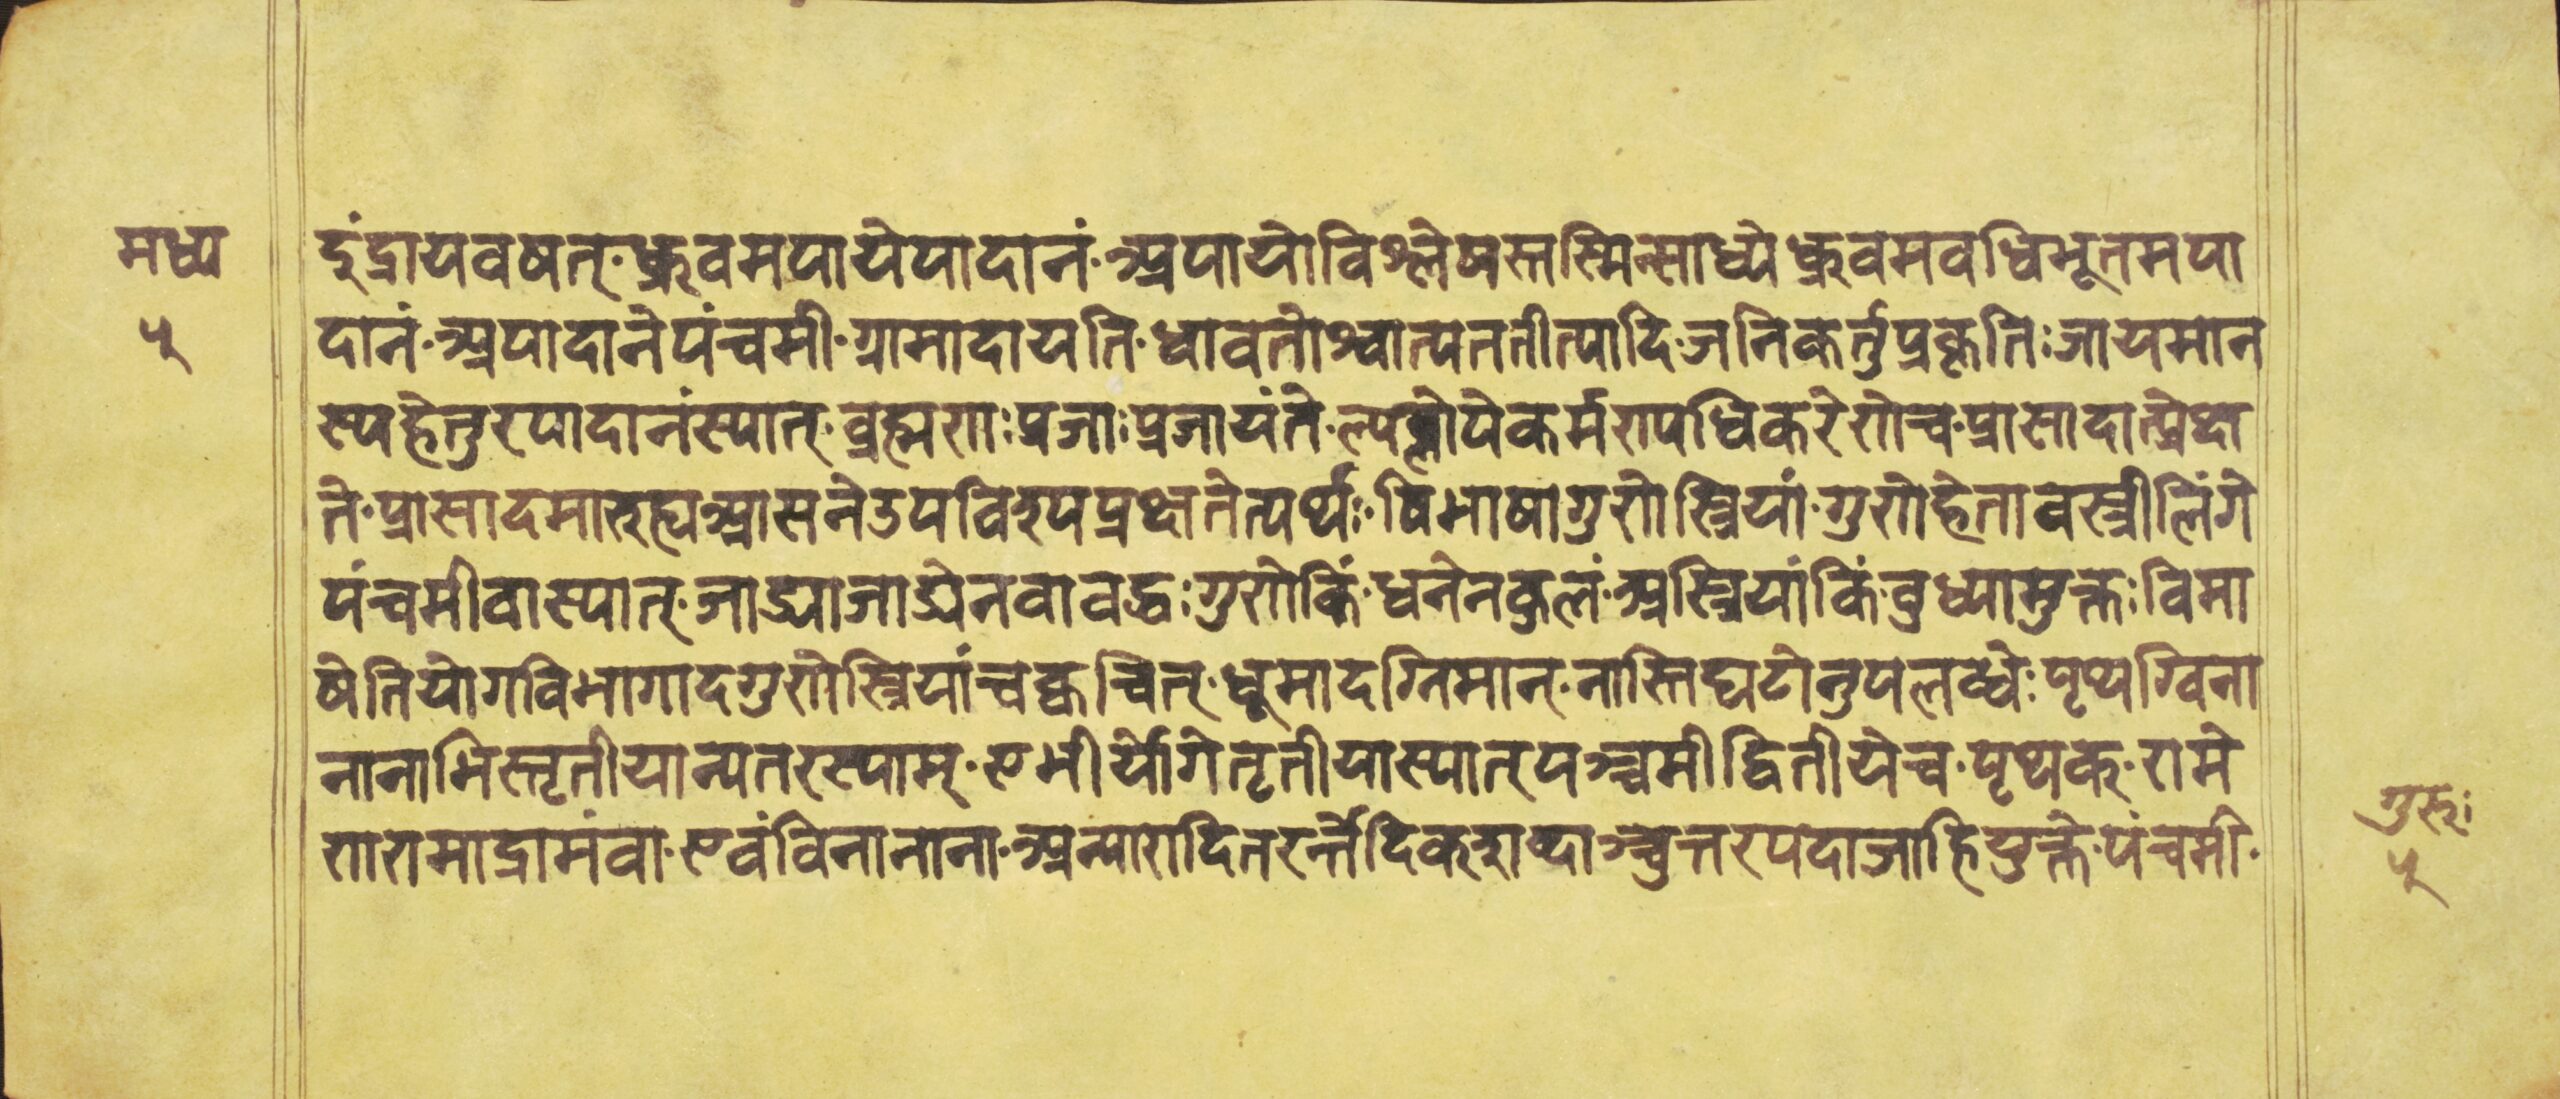 मध्य
५
दुंद्रायवषत्·ध्रुवमपायेपादानं·अपायोविश्लेषस्तस्मिन्साध्येध्रुवमवधिभूतमपा
दानं·अपादानेपंचमी·ग्रामादायति·धावतोश्वात्पततीत्यादि·जनिकर्तुप्रकृतिः जायमान
स्यहेतुरपादानंस्यात्·ब्रह्मणः प्रजाः प्रजायंते·ल्यब्लोपेकर्मण्यधिकरेणेच·प्रासादात्प्रेक्ष
ते·प्रासादमारुह्यआसनेउपविश्यप्रक्षतेत्यर्थः·विभाषागुणेस्त्रियां·गुणेहेतावस्त्रीलिंगे
पंचमीवास्यात्·जाड्याजाड्येनवावद्धः गुणेकिं·धनेनकुलं·अस्त्रियांकिं·बुध्यामुक्तः विभा
षेतियोगविभागादगुणेस्त्रियांचक्वचित्·धूमादग्निमान्·नास्तिघटोनुपलब्धेः पृथग्विना
नानाभिस्तृतीयान्यतरस्याम्·एभीर्योगेतृतीयास्यात्पञ्चमीद्वितीयेच·पृथक्·रामे
णरामाद्रामंवा·एवंविनानाना·अन्यारादितरर्त्तेदिक्शब्दाञ्चुत्तरपदाजाहियुक्ते·पंचमी·
गुरुः
५